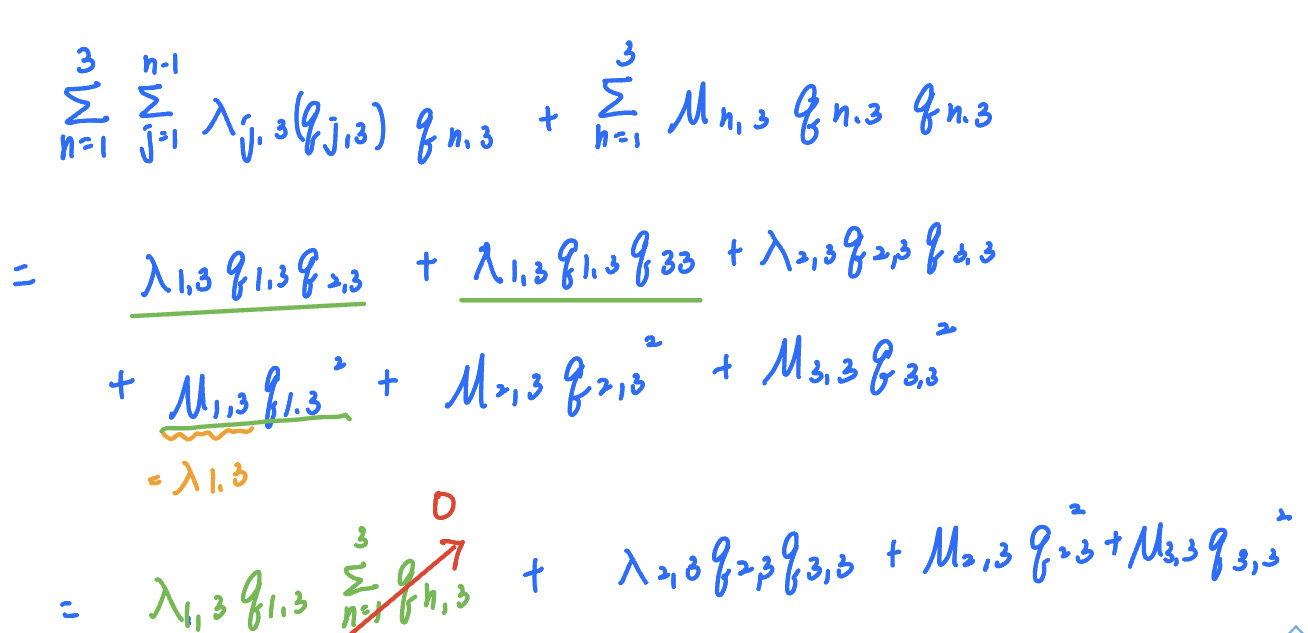 \sum_{n=1}^{3} \sum_{j=1}^{n-1} \lambda_{j,3}(q_{j,3}) q_{n,3} + \sum_{n=1}^{3} \mu_{n,3} q_{n,3} q_{n,3}
= \lambda_{1,3} q_{1,3} q_{2,3} + \lambda_{1,3} q_{1,3} q_{33} + \lambda_{2,3} q_{2,3} q_{3,3}
+ \mu_{1,3} q_{1,3}^2 + \mu_{2,3} q_{2,3}^2 + \mu_{3,3} q_{3,3}^2
= \lambda_{1,3}
0
= \lambda_{1,3} q_{1,3} \sum_{n=1}^{3} q_{n,3} + \lambda_{2,3} q_{2,3} q_{3,3} + \mu_{2,3} q_{2,3}^2 + \mu_{3,3} q_{3,3}^2